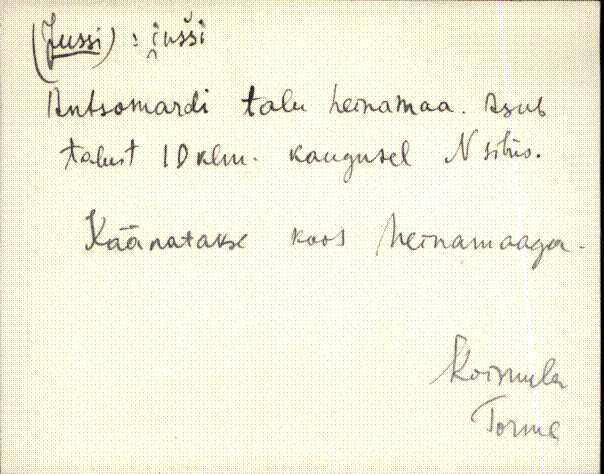 (Jussi) : i̯ušši
Antsomardi talu heinamaa. Asub
talust 10 klm. kaugusel N sihis.
Käänatakse koos heinamaaga.
Koimula
Torma